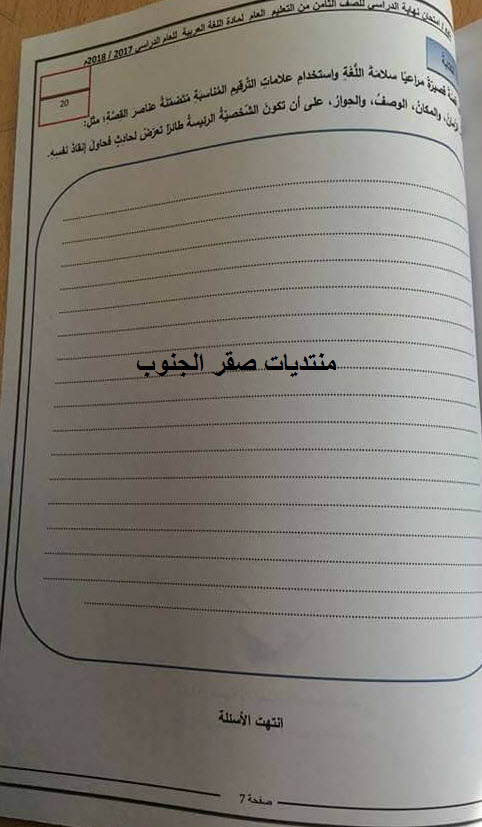 امتحان نهاية الدراسي للصف الثامن من التعليم العام لمادة اللغة العربية للعام الدراسي 2017 / 2018م
20
قصيرة مراعيًا سلامة اللُّغةِ واستخدامِ علاماتِ التَّرقيم المُناسبةِ مُتضمِّنةً عناصر القصَّةِ؛ مثل:
والمكانُ، الوصفُ، والحِوارُ، على أن تكونَ الشَّخصيَّةُ الرئيسةُ طائرًا تعرَّضَ لحادثٍ فحاولَ إنقاذَ نفسه.
منتديات صقر الجنوب
انتهت الأسئلة
صفحة 7